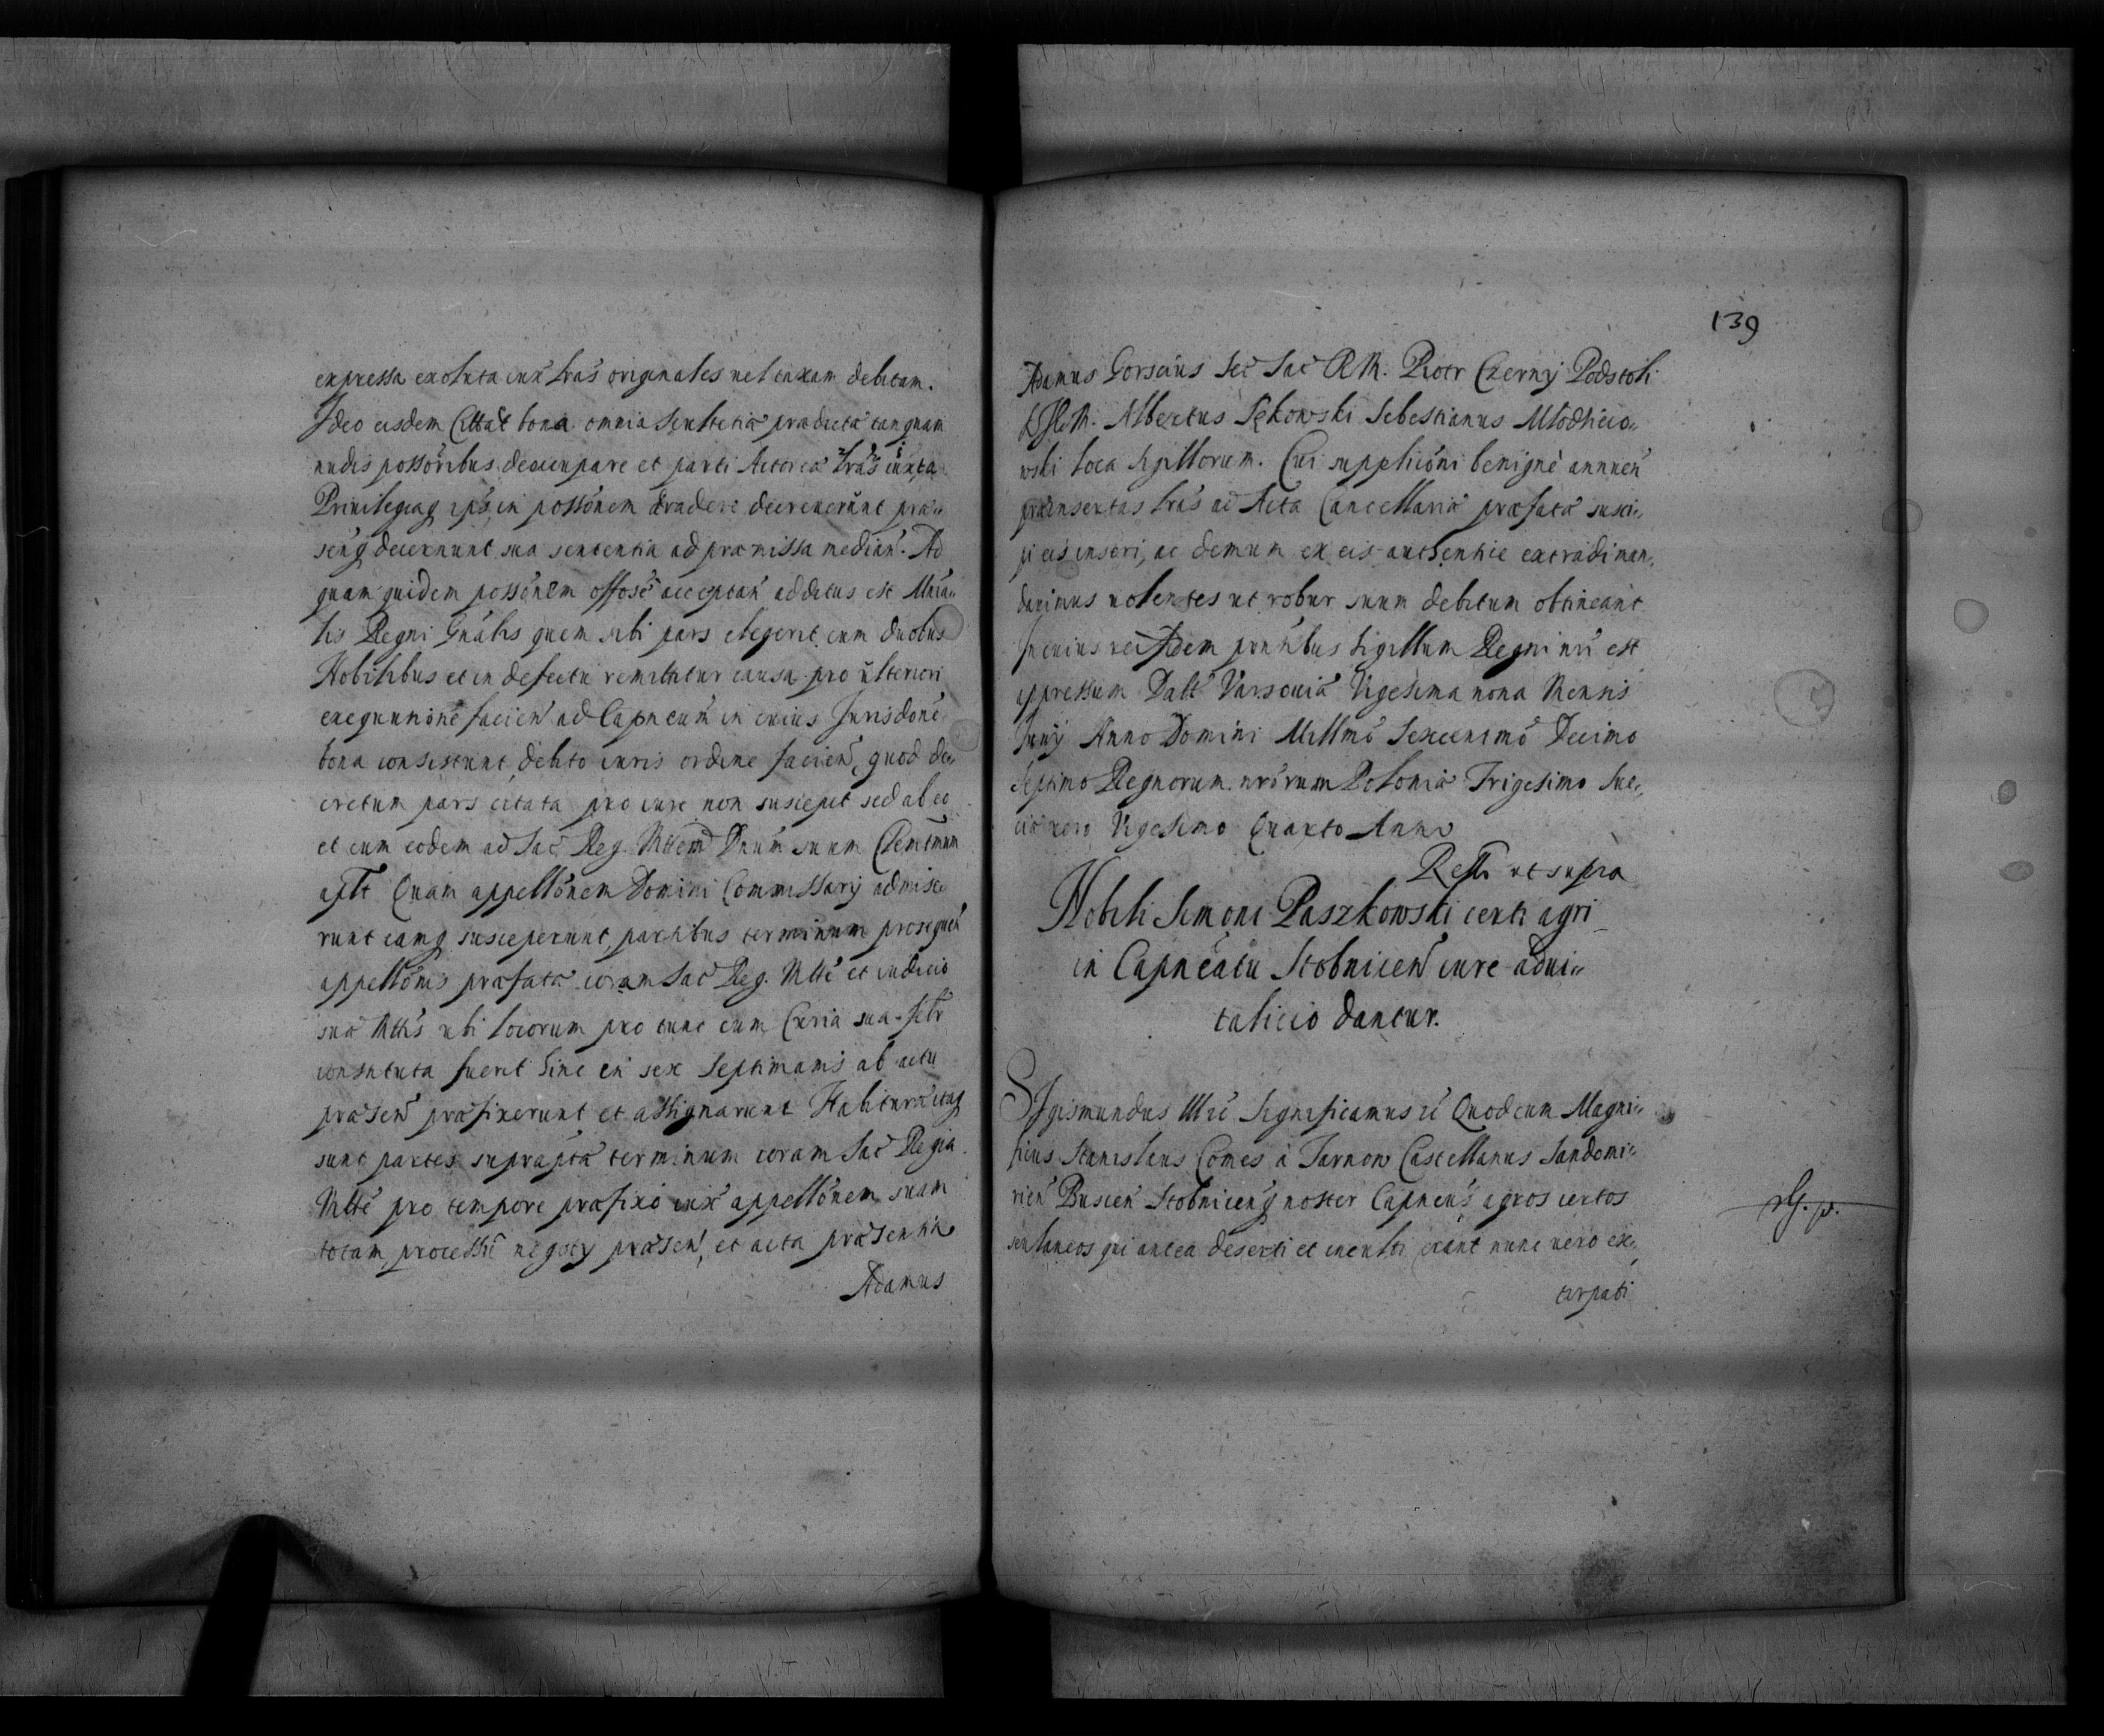 expressa exoluta iux lras originales vel taxam debitam.
Ideo eisdem Cittat bona omnia Scultetiae praedicta tanquam
nudis possoribus deoccupare et parti Actorea lras iuxta
Privilegiaq ips in possonem tradere decreverunt prae„
sensq decernunt sua sententia ad praemissa median. Ad
quam quidem possonem offose acceptan additus est Mnia„
lis Regni Gnalis quem sibi pars elegerit cum duobus
Nobilibus et in defectu remittitur causa pro ulteriori
exequutione facien ad Capneum in cuius Jurisdone
bona consistunt, debito iuris ordine facien, quod de„
cretum pars citata pro iure non suscepit sed ab eo
et cum eodem ad Sac Reg Mttem Dnum suum Clemtmum
aplt Quam appellonem Domini Commissarij admise
runt eamq susceperunt, partibus terminum prosequen
appellonis praefatae coram Sac Reg. Mtte et iudicio
suae Mttis ubi locorum pro tunc cum Curia sua flr
constituta fuerit hinc in sex Septimanis ab actu
praesen praefixerunt et assignarunt Habiturae itaq
sunt partes supraptae terminum coram Sac Regia
Mtte pro tempore praefixo iux appellonem suam
totam processu negoty praesen, et acta praesentia
Adamus
139
Adamus Gorscius Sec Sac R M. Piotr Czerny Podstoli
Albertus Sękowski Sebestianus Młodziio„
wski loca sigillorum. Cui supplicioni benigne annuen
praeinsertas lras ad Acta Cancellariae praefatae susci„
pi eis inseri, ac demum ex eis authentice extradi man„
davimus volentes ut robur suum debitum obtineant
In cuius rei fidem pntibus Sigillum Regni nri est
appressum Datt Varsoviae Vigesima nona Mensis
Junij Anno Domini Millmo Sexcentmo Decimo
Septimo Regnorum nrorum Poloniae Trigesimo Sue„
ciae vero Vigesimo Quarto Anno
Relt ut supra
Nobili Simoni Paszkowski certi agri
in Capneatu Stobnicen iure advi„
talicio dantur.
Sigismundus IIIus Significamus z Quod cum Magni„
ficus Stanislaus Comes a Tarnow Castellanus Sandomi„
rien Buscen Stobnicenq noster Capneus agros certos
scultaneos qui antea deserti et inculti erant nunc vero ex„
tirpati